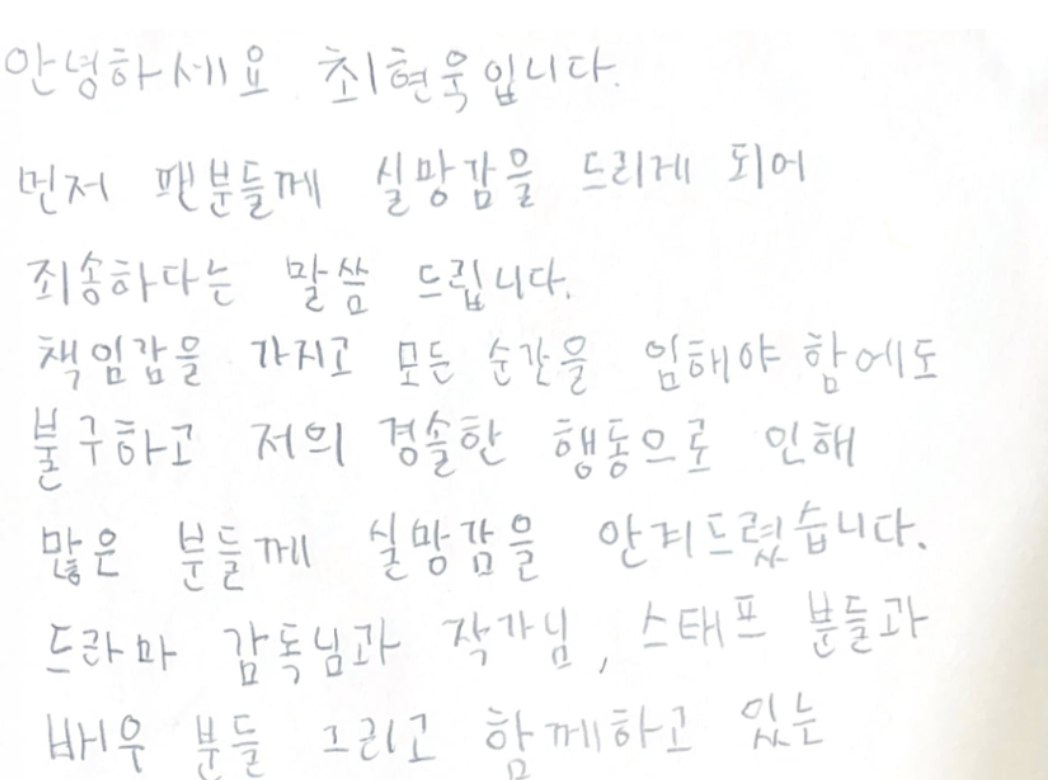 안녕하세요 최현욱입니다.
먼저 팬분들께 실망감을 드리게 되어
죄송하다는 말씀 드립니다.
책임감을 가지고 모든 순간을 임해야 함에도
불구하고 저의 경솔한 행동으로 인해
많은 분들께 실망감을 안겨드렸습니다.
드라마 감독님과 작가님, 스태프 분들과
배우 분들 그리고 함께하고 있는